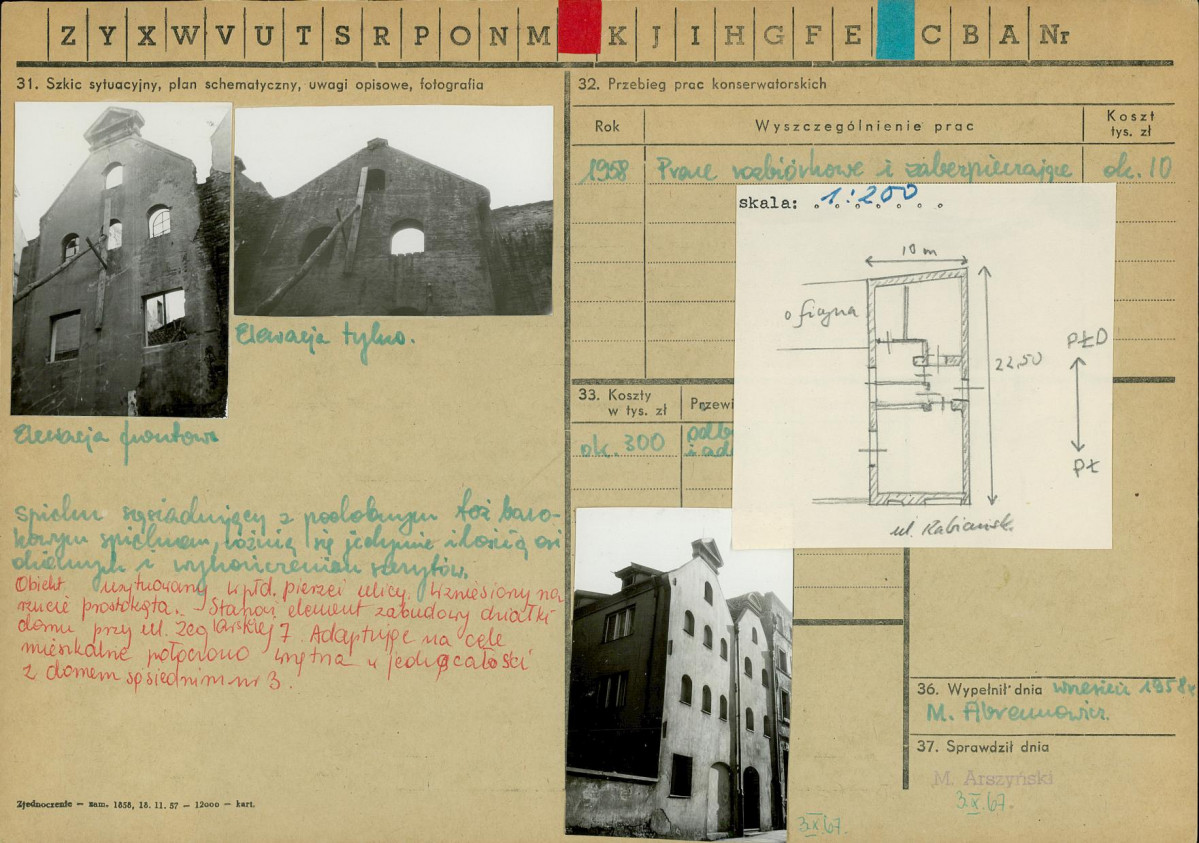 Z Y X W V U T S R P O N M K J I H G F E C B A Nr
31. Szkic sytuacyjny, plan schematyczny, uwagi opisowe, fotografia
Elewacja tylna.
Elewacja frontowa
Spichrz sąsiadujący z podobnym też baro-
kowym spichrzem, różnią się jedynie ilością osi
i wykończeniem szczytów.
Obiekt usytuowany w płd. pierzei ulicy. Wzniesiony na
rzucie prostokąta. Stanowi element zabudowy działki
domu przy ul. Żeglarskiej 7. Adaptując na cele
mieszkalne połączono wnętrza w jedną całość
z domem sąsiednim nr 3.
Zjednoczenie — zam. 1858, 18. 11. 57 — 12000 — kart.
32. Przebieg prac konserwatorskich
Rok
Wyszczególnienie prac
Koszt
tys. zł
1958
Prace rozbiórkowe i zabezpieczające
ok. 10
skala: 1:200
10 m
oficyna
22,50
PŁD
PŁ
ul. Rabiańsk.
33. Koszty
w tys. zł
Przewi
ok. 300
odb
i ad
36. Wypełnił dnia wrzesień 1958 r.
M. Abramowicz.
37. Sprawdził dnia
M. Arszyński
3.X.67.
3.X.67.